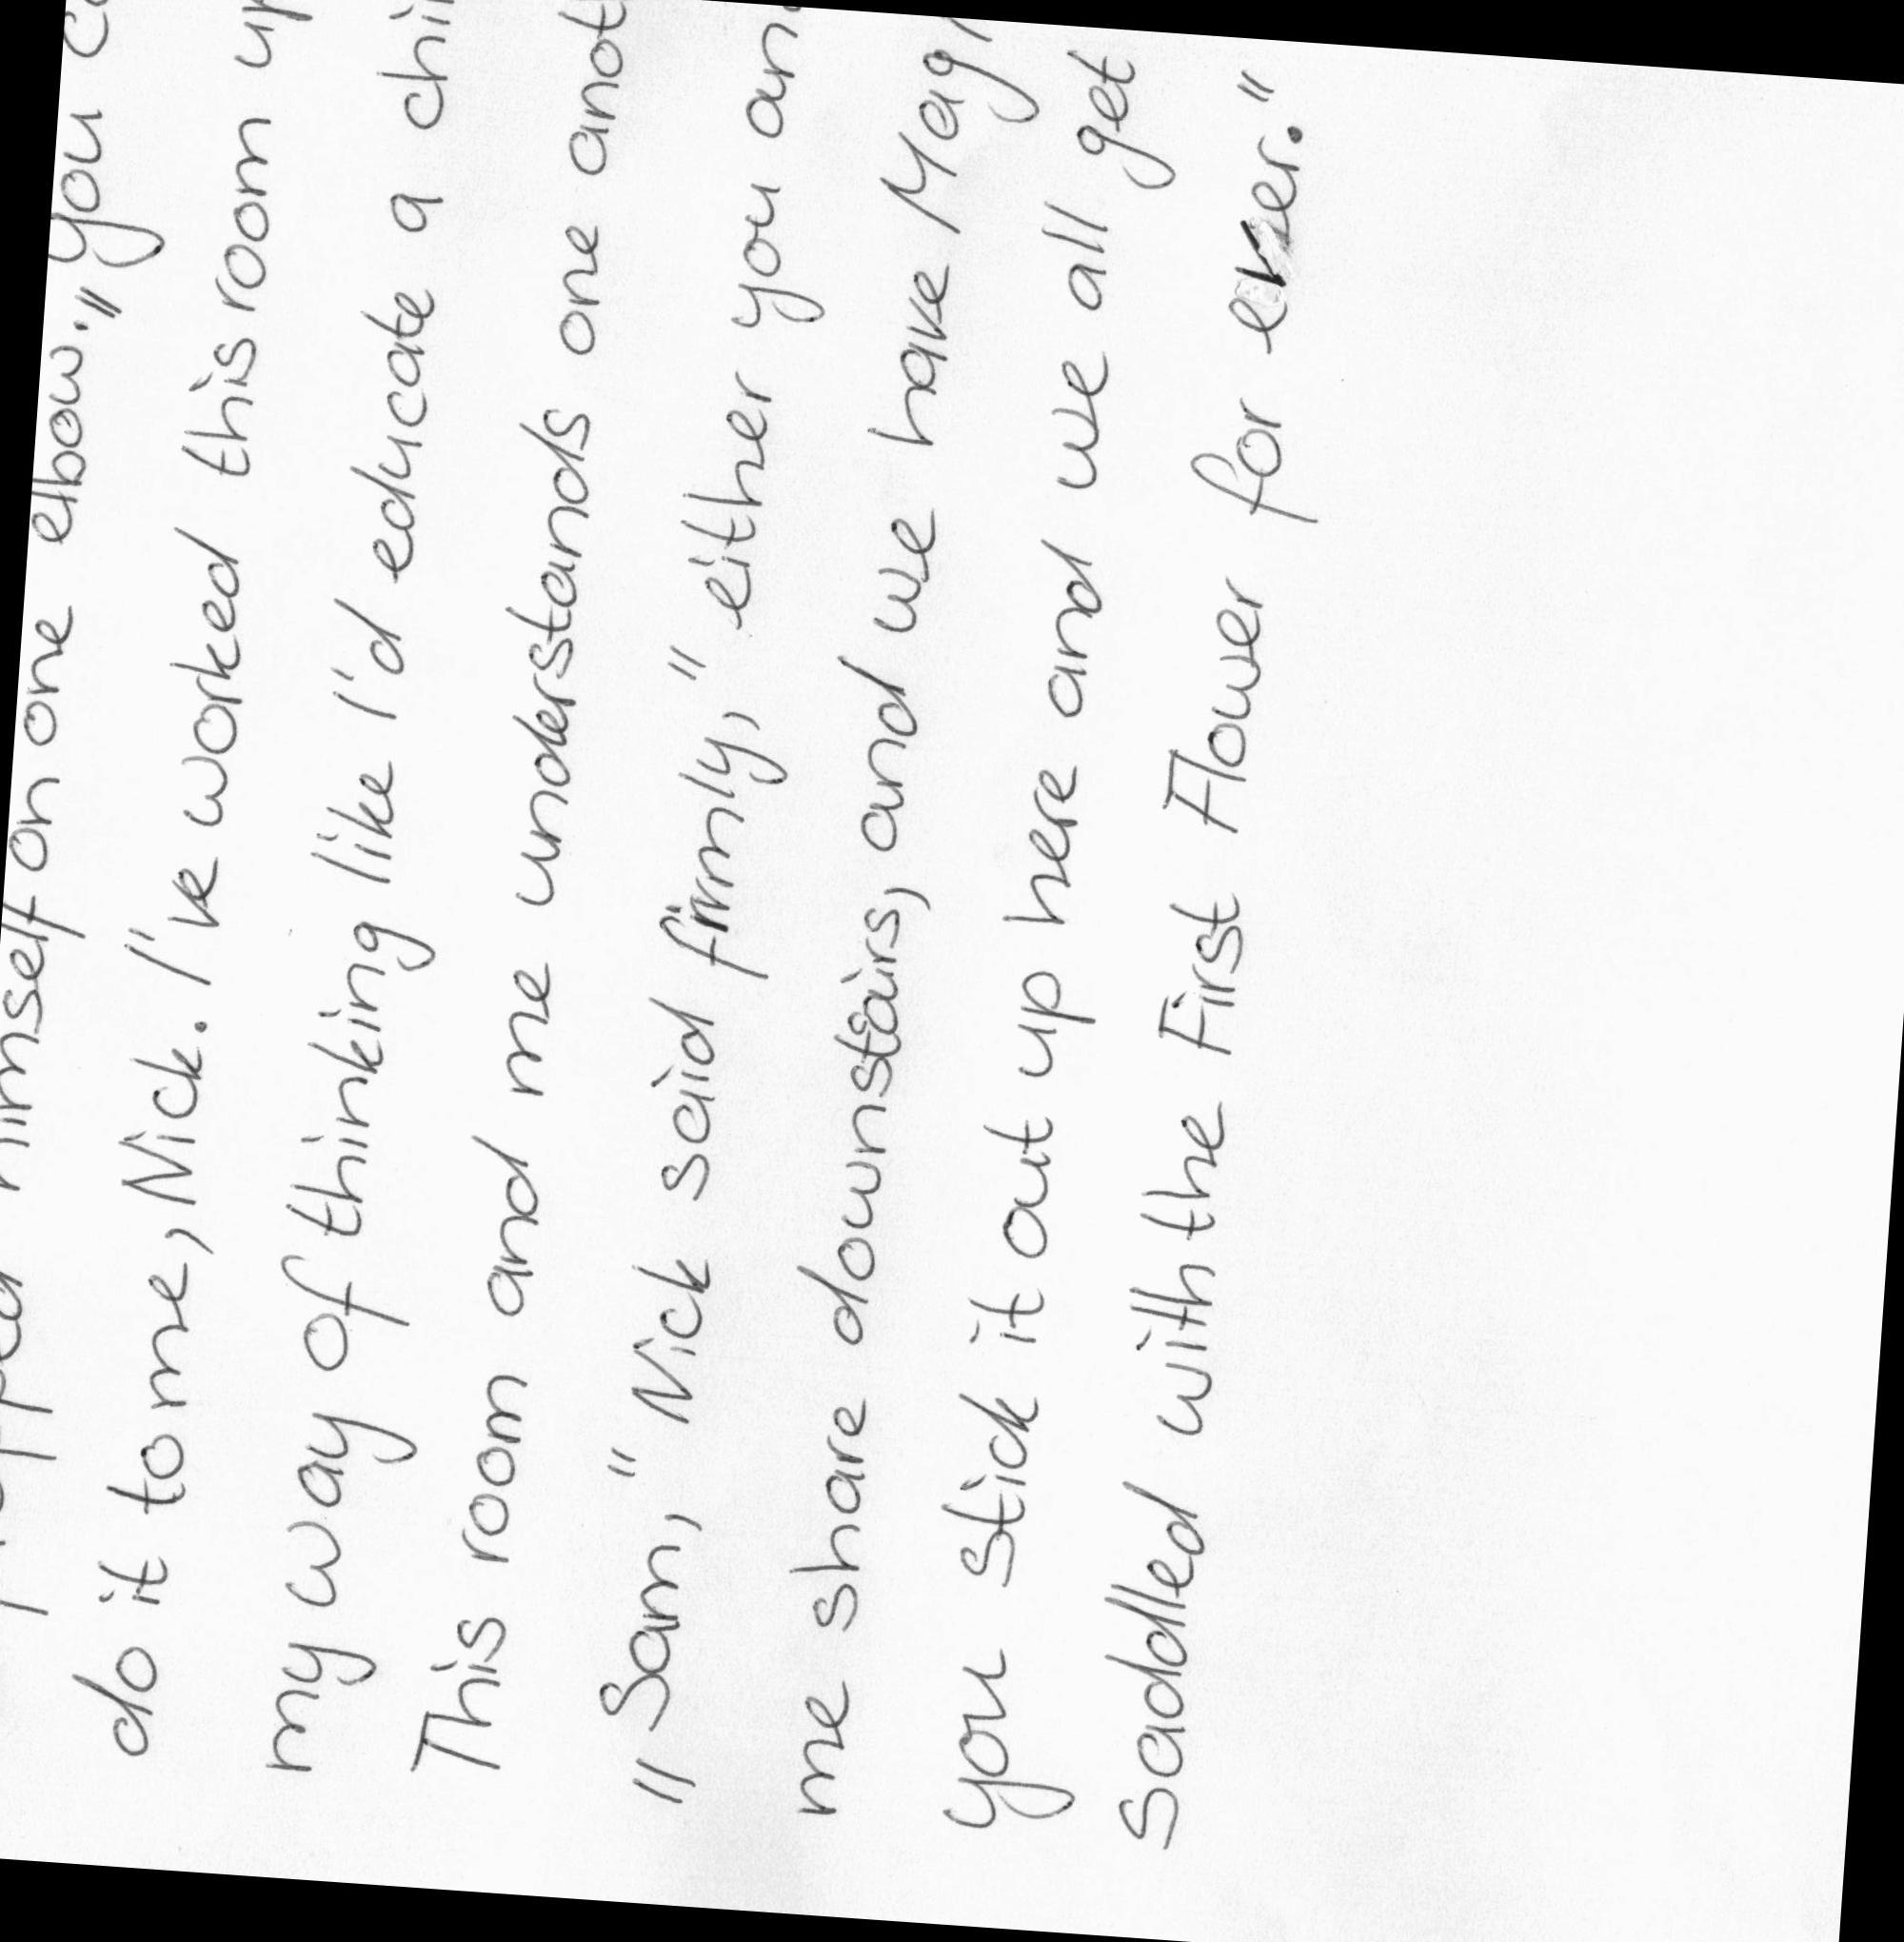 himself on one elbow. "you
do it to me, Nick. I've worked this room up
my way of thinking like I'd educate a
This room and me understands one
"Sam," Nick said firmly, "either you
me share downstairs, and we have
you stick it out up here and we all get
saddled with the First Flower for ever."